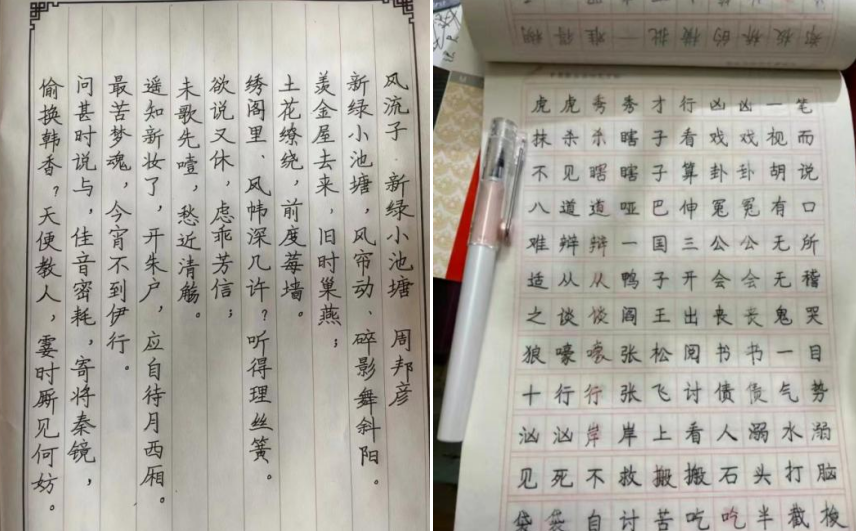 风流子·新绿小池塘 周邦彦
新绿小池塘，风帘动、碎影舞斜阳。
羡金屋去来，旧时巢燕；
土花缭绕，前度莓墙。
绣阁里、风帏深几许？听得理丝簧。
欲说又休，虑乖芳信；
未歌先噎，愁近清觞。
遥知新妆了，开朱户，应自待月西厢。
最苦梦魂，今宵不到伊行。
问甚时说与，佳音密耗，寄将秦镜，
偷换韩香？天便教人，霎时厮见何妨。
虎虎秀秀才行凶凶一笔
抹杀杀瞎子看戏戏视而
不见瞎瞎子算卦卦胡说
八道道哑巴伸冤冤有口
难辩辩一国三公公无所
适从从鸭子开会会无稽
之谈谈阎王出丧丧鬼哭
狼嚎嚎张松阅书书一目
十行行张飞讨债债气势
汹汹岸岸上看人溺水溺
见死不救搬搬石头打脑
自讨苦吃吃半截梭